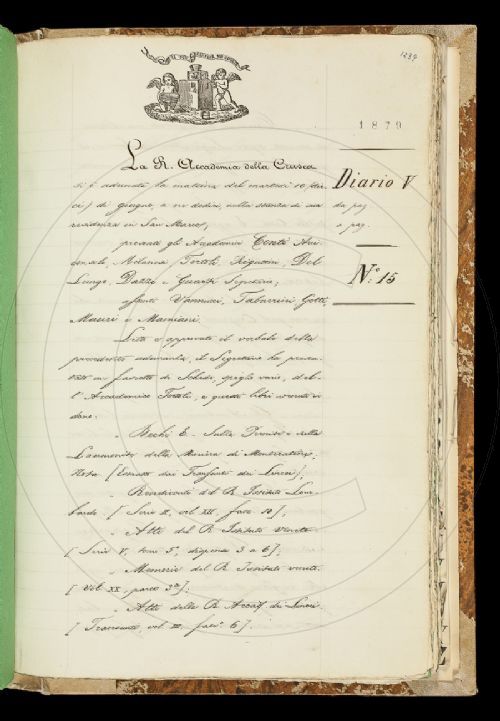 1234
1879
La R. Accademia della Crusca
si è adunata la mattina del martedì 10 (die
ci) di giugno, a ore dodici, nella stanza di sua
residenza in San Marco,
presenti gli Accademici Conti Arci
consolo, Milanesi, Tortoli, Rigutini, Del
Lungo, Dazzi e Guasti Segretario;
assenti Vannucci, Tabarrini, Gotti,
Mauri e Mamiani.
Letto e approvato il verbale della
precedente adunanza, il Segretario ha presen
tato un fascetto di Schede, spoglio vario, del
l'Accademico Tortoli, e questi libri venuti in
dono:
Bechi E. Sulla
della Miniera di
Nota [Estratto dai Transunti dei Lincei];
Rendiconti del R. Istituto Lom
bardo. [Serie II, vol. XII, fasc. 10];
Atti del R. Istituto veneto
[Serie V, tomo 5°, dispensa 3 a 6];
Memorie del R. Istituto veneto.
[Vol. XX, parte 3ª];
Atti della R. Accad. dei Lincei.
[Transunti, vol. III, fasc. 6].
Diario V
da pag
a pag.
N.° 15